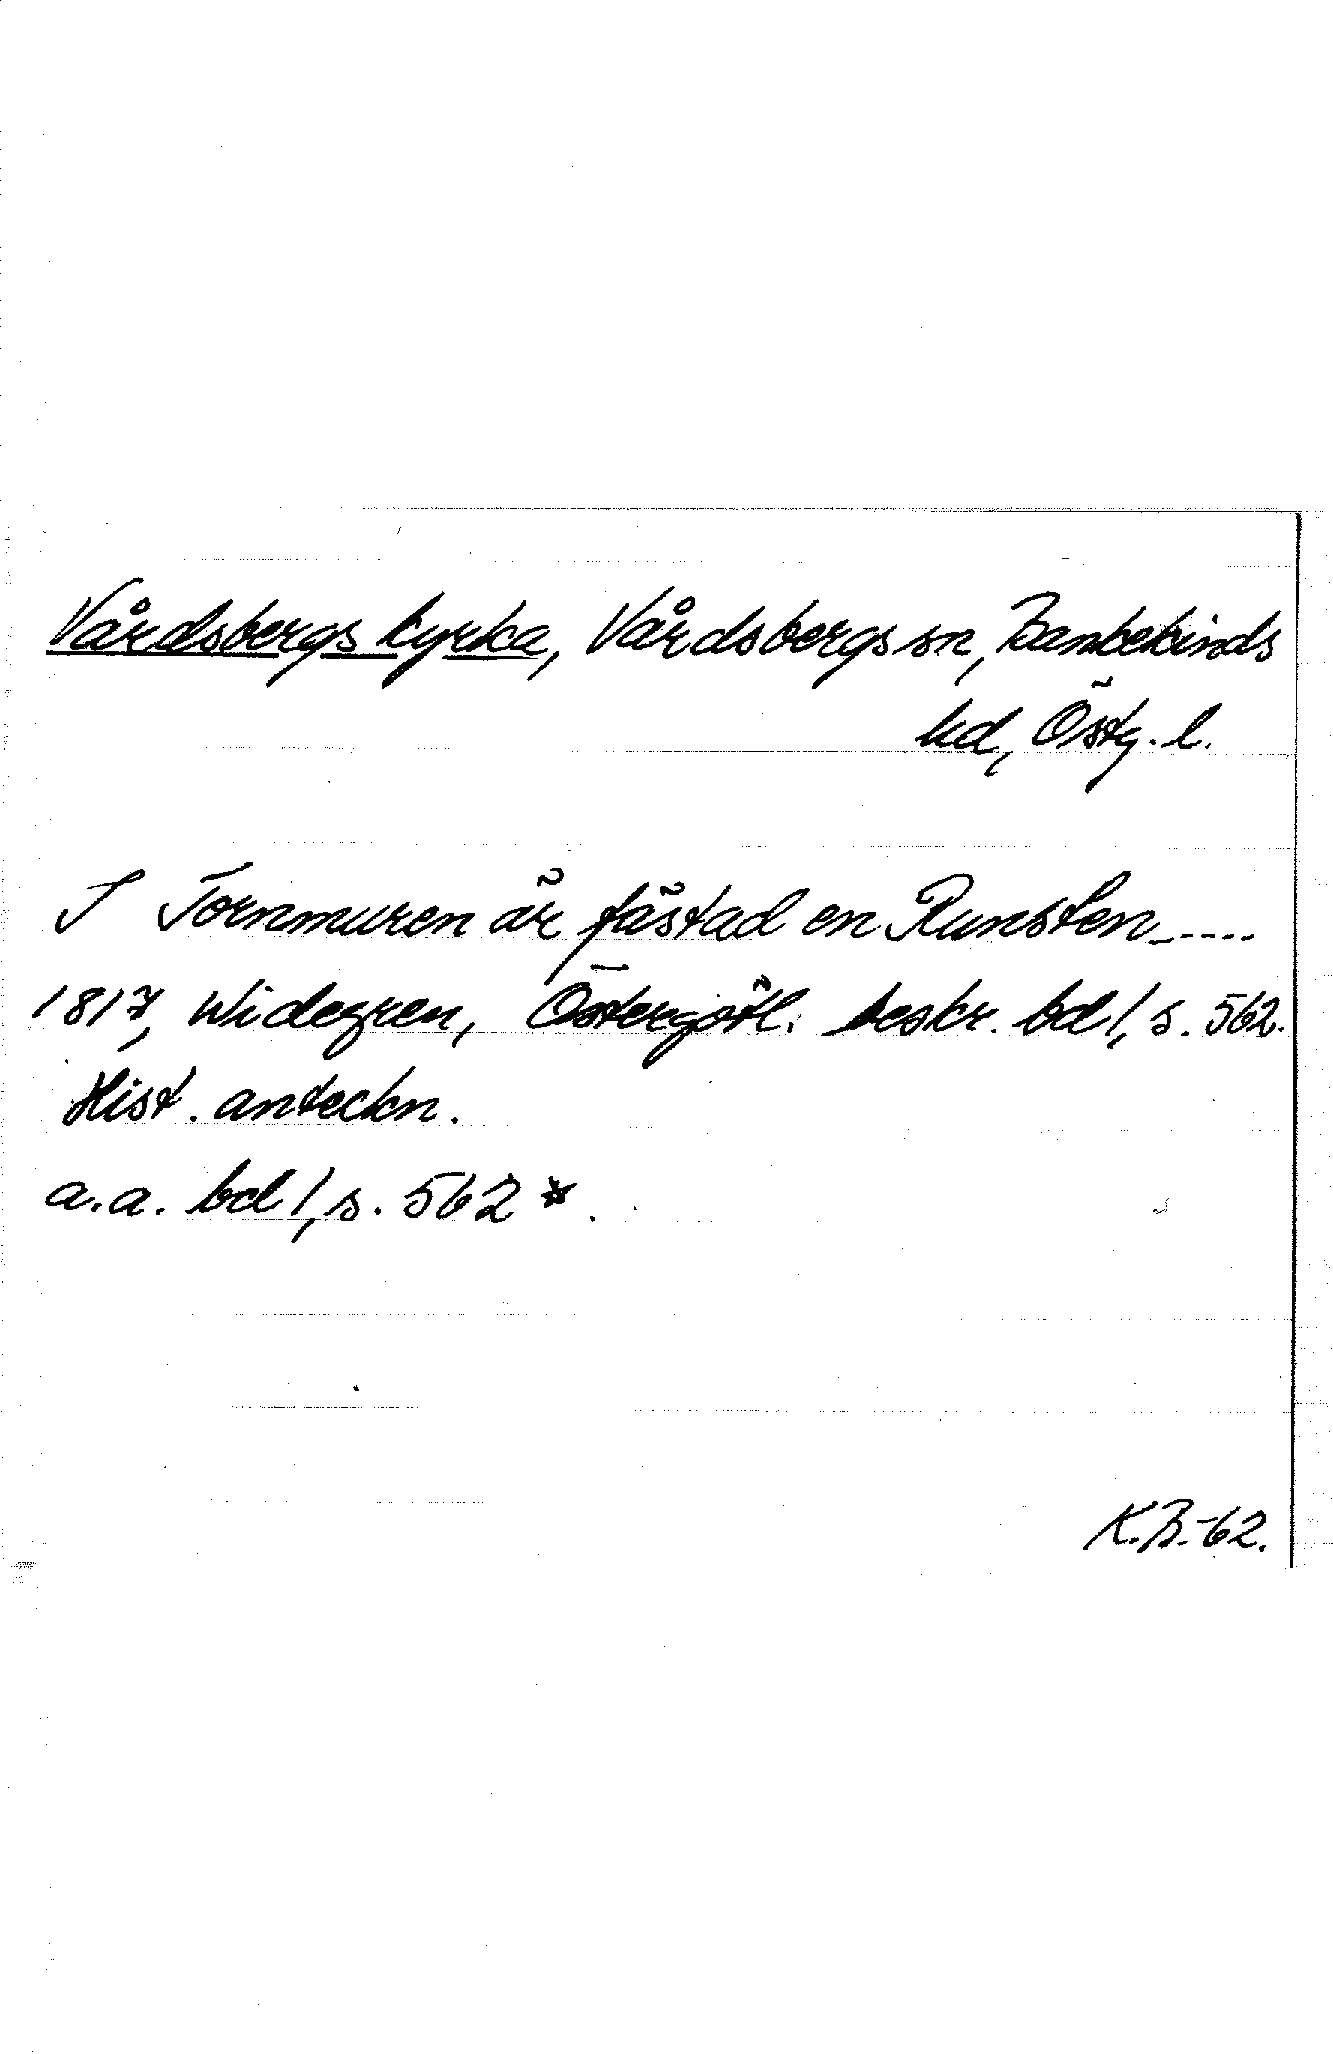 Vårdsbergs kyrka, Vårdsbergs sn, Bankekinds
hd, Östg. l.
I Tornmuren är fästad en Runsten.....
1817, Widegren, Östergötl. beskr. bd 1, s. 562.
Hist. anteckn.
a.a. bd 1, s. 562 *.
K.B.-62.